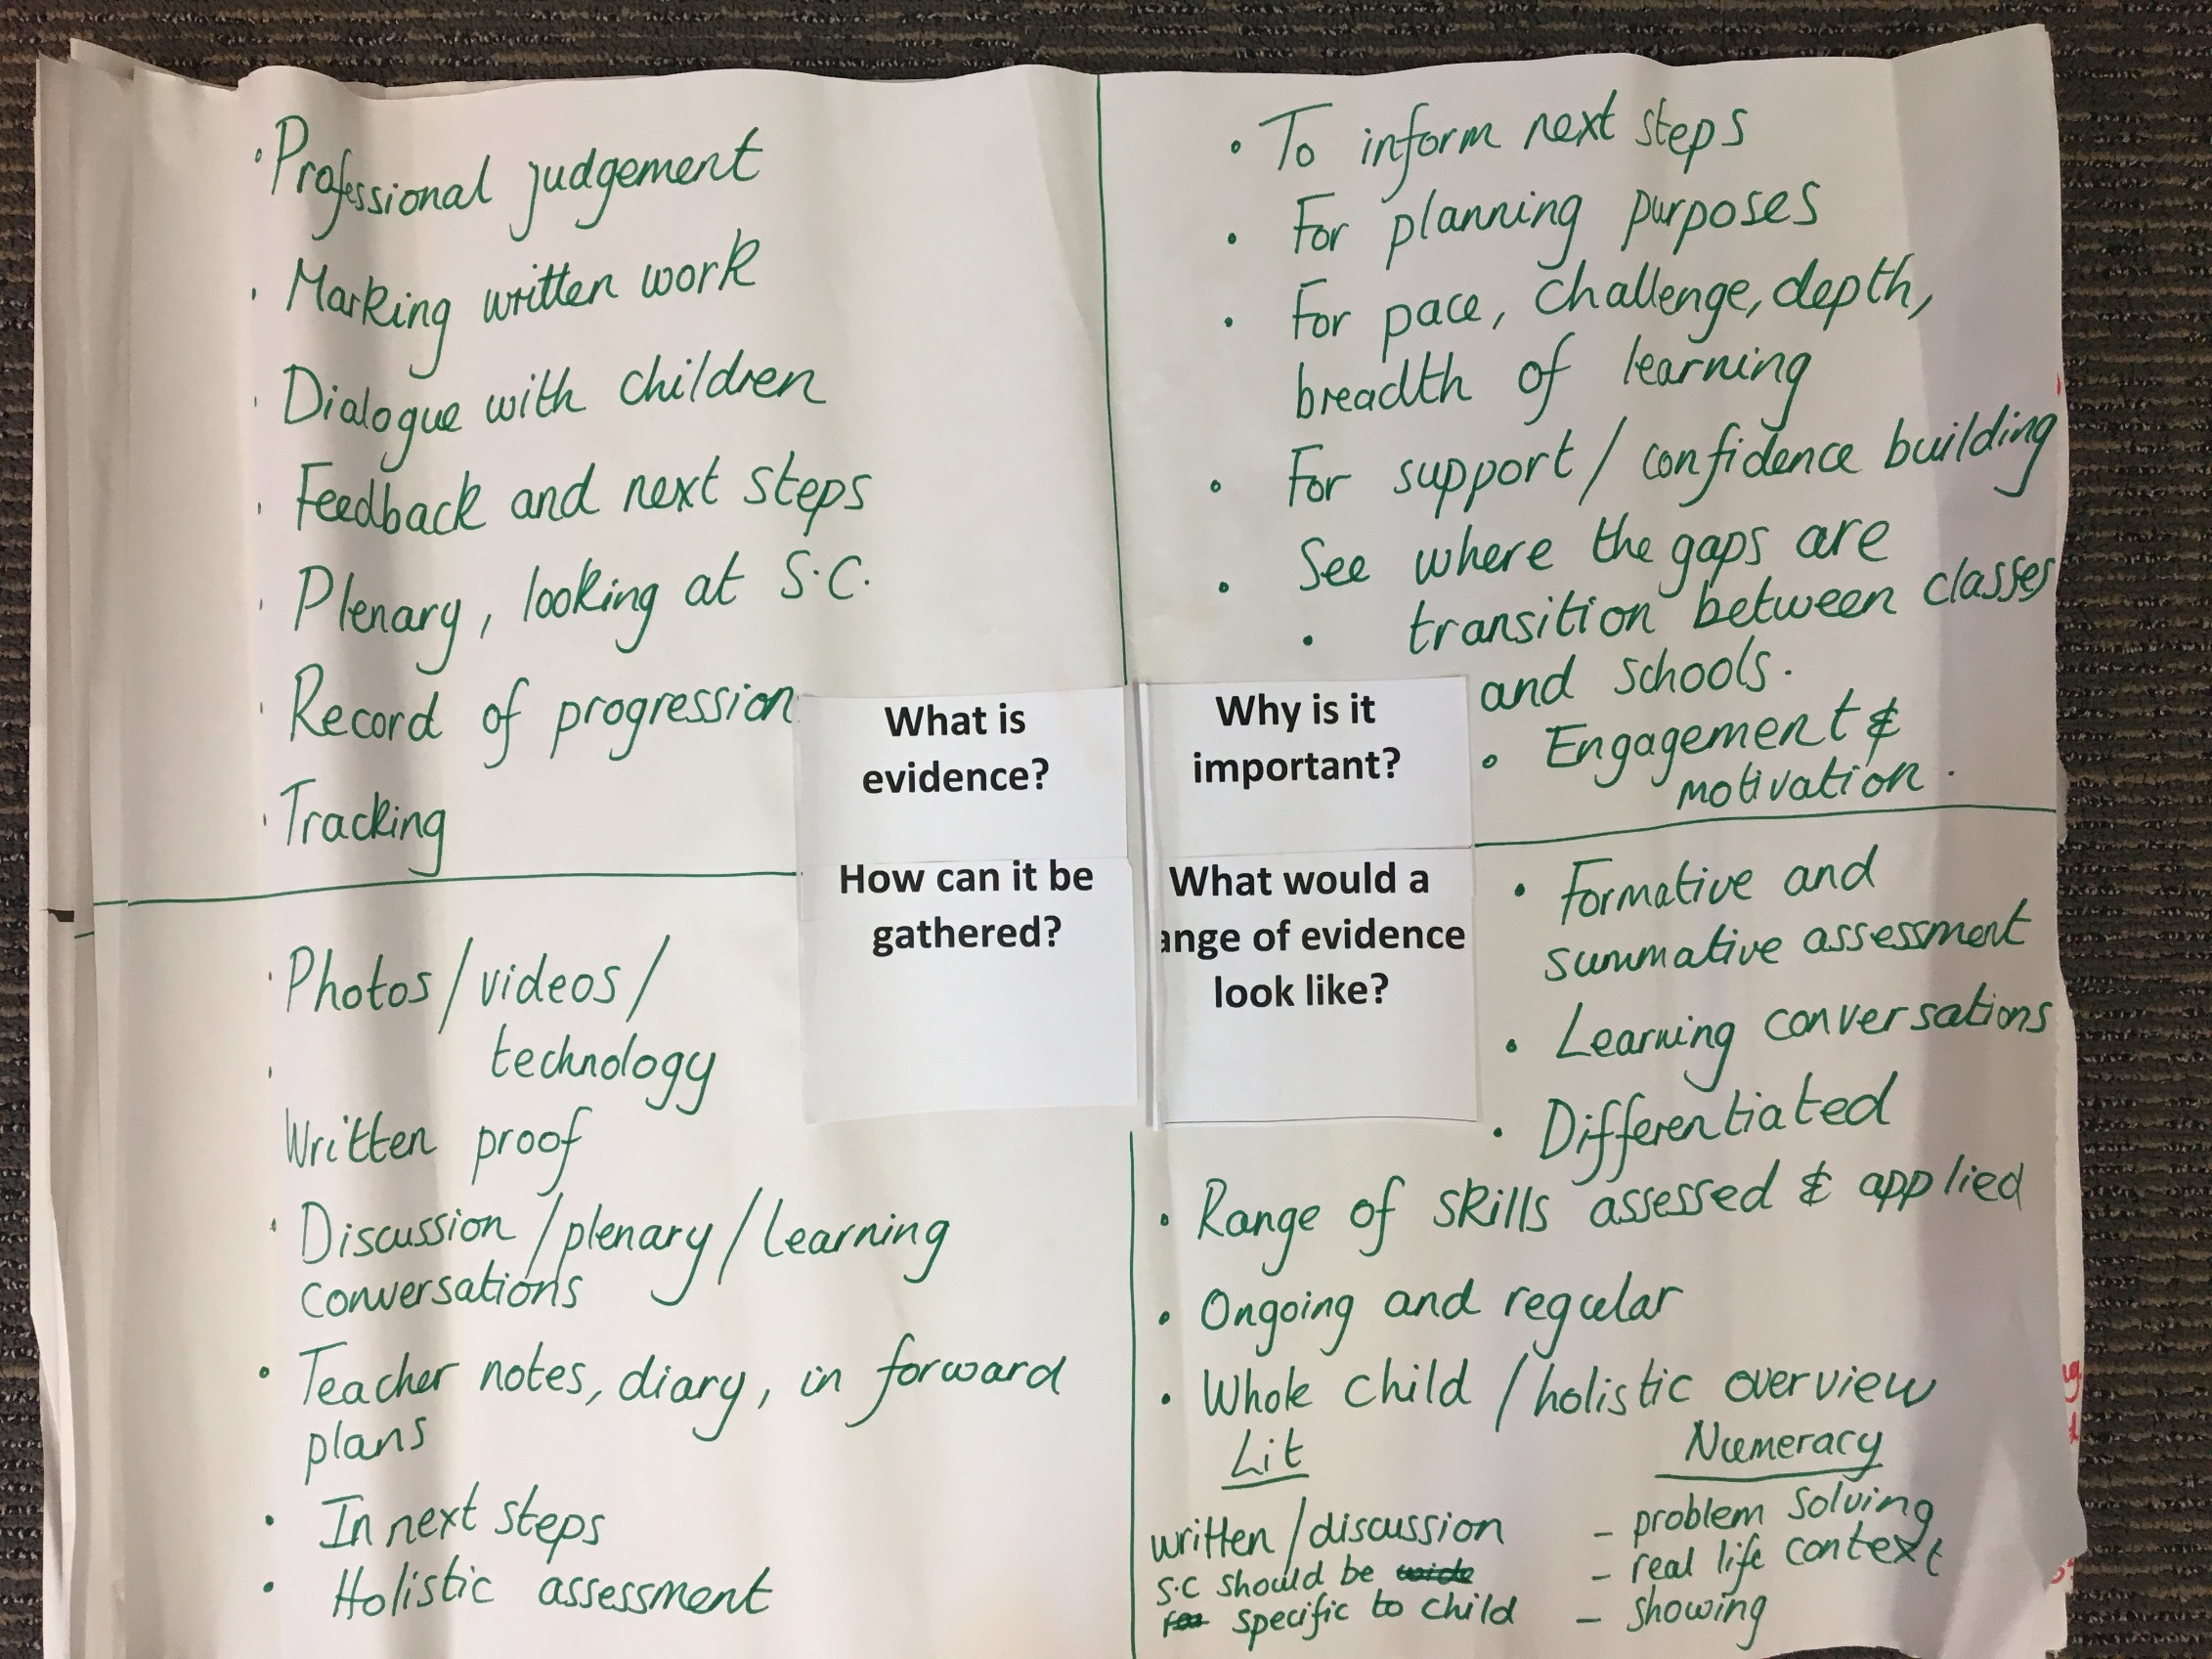 • Professional judgement
• Marking written work
• Dialogue with children
• Feedback and next steps
• Plenary, looking at S.C.
• Record of progression
• Tracking
What is
evidence?
• To inform next steps
• For planning purposes
• For pace, challenge, depth,
breadth of learning
• For support / confidence building
• See where the gaps are
• transition between classes
and schools.
• Engagement &
motivation.
Why is it
important?
How can it be
gathered?
• Photos / videos /
• technology
Written proof
• Discussion / plenary / learning
conversations
• Teacher notes, diary, in forward
plans
• In next steps
• Holistic assessment
What would a
ange of evidence
look like?
• Formative and
summative assessment
• Learning conversations
• Differentiated
• Range of skills assessed & applied
• Ongoing and regular
• Whole child / holistic overview
Lit
written / discussion
S.C should be
specific to child
Numeracy
– problem solving
– real life context
– showing